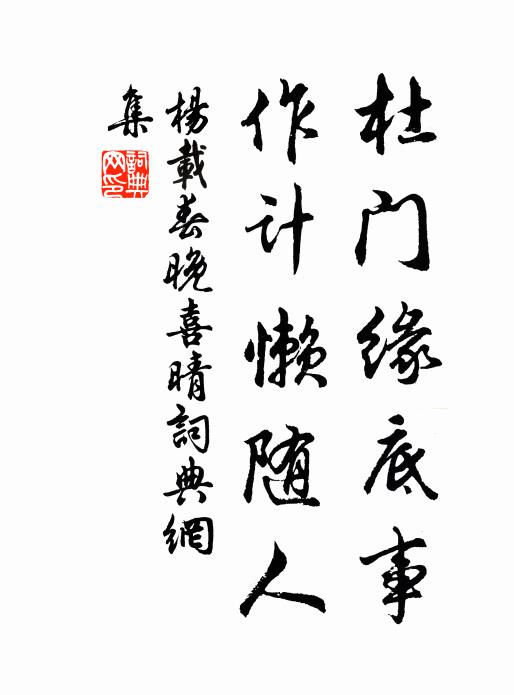 杜门缘底事
作计懒随人
楊載春晚喜晴詞典網
集
詞典
网印